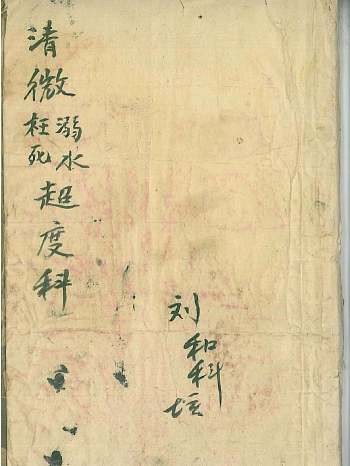 清微溺水枉死超度科
刘和科坛